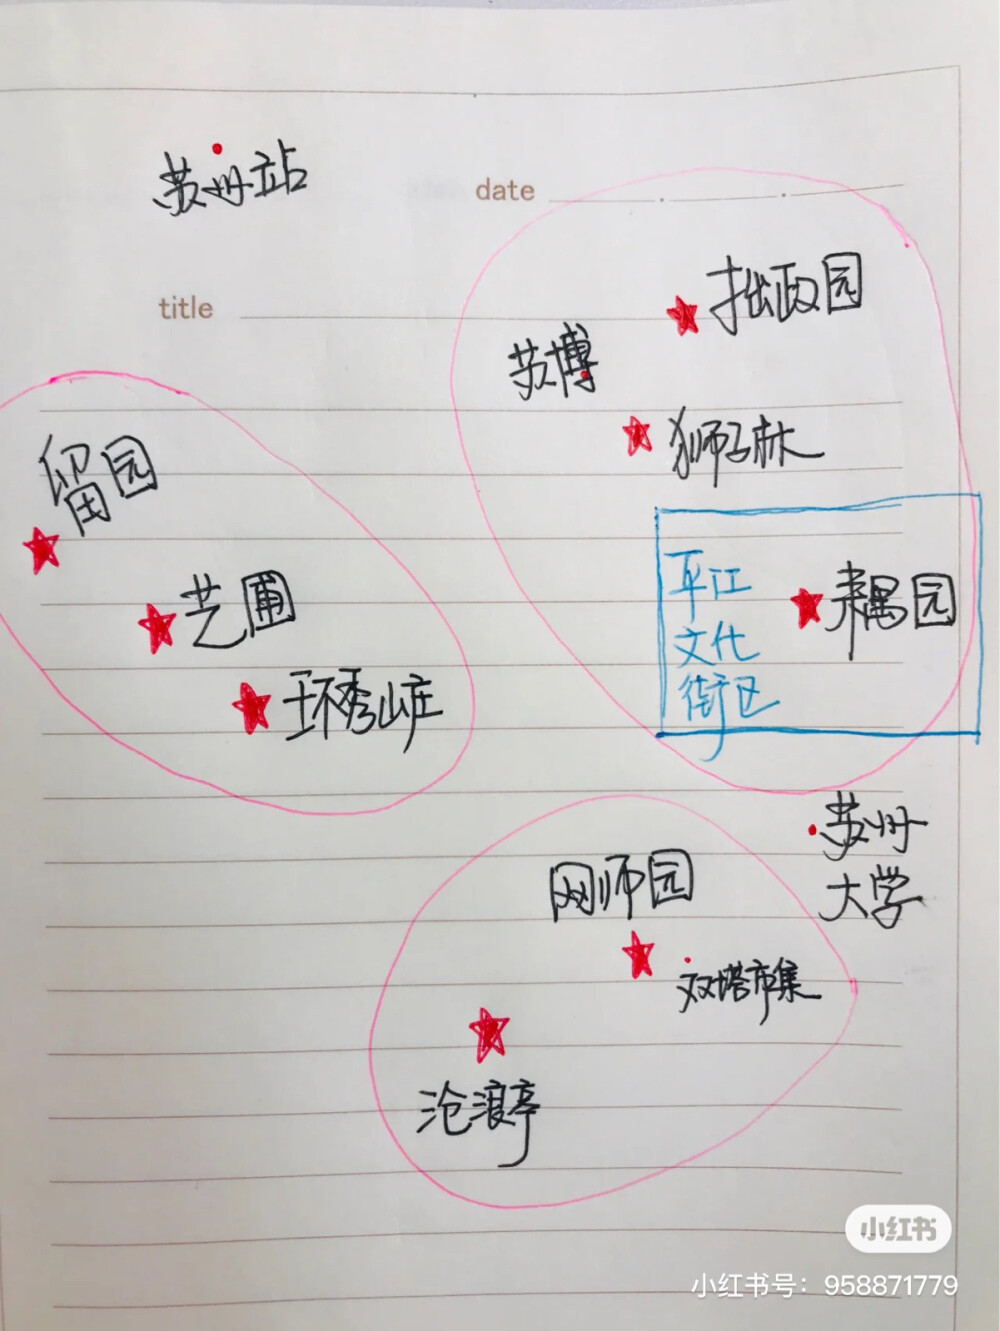 苏州站
date
title
拙政园
苏博
狮子林
留园
平江
文化
街区
耦园
艺圃
环秀山庄
苏州
大学
网师园
双塔市集
沧浪亭
小红书
小红书号：958871779